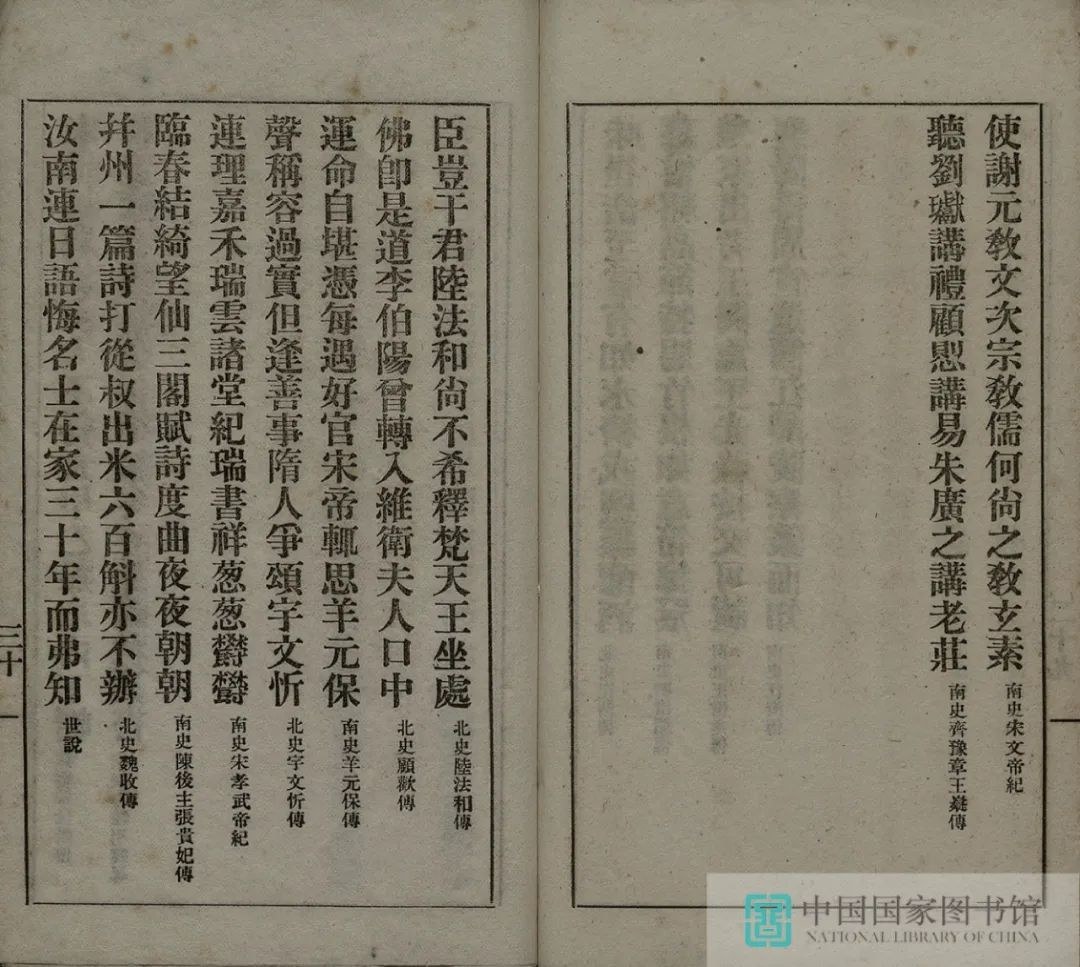 使謝元敎文次宗敎儒何尙之敎玄素 南史宋文帝紀
聽劉瓛講禮顧懽講易朱廣之講老莊 南史齊豫章王嶷傳
臣豈干君陸法和尙不希釋梵天王坐處 北史陸法和傳
佛卽是道李伯陽曾轉入維衛夫人口中 北史顧歡傳
運命自堪憑每遇好官宋帝輒思羊元保 南史羊元保傳
聲稱容過實但逢善事隋人爭頌宇文忻 北史宇文忻傳
連理嘉禾瑞雲諸堂紀瑞書祥葱葱鬱鬱 南史宋孝武帝紀
臨春結綺望仙三閣賦詩度曲夜夜朝朝 南史陳後主張貴妃傳
幷州一篇詩打從叔出米六百斛亦不辦 北史魏收傳
汝南連日語悔名士在家三十年而弗知 世說
三十
中国国家图书馆
NATIONAL LIBRARY OF CHINA